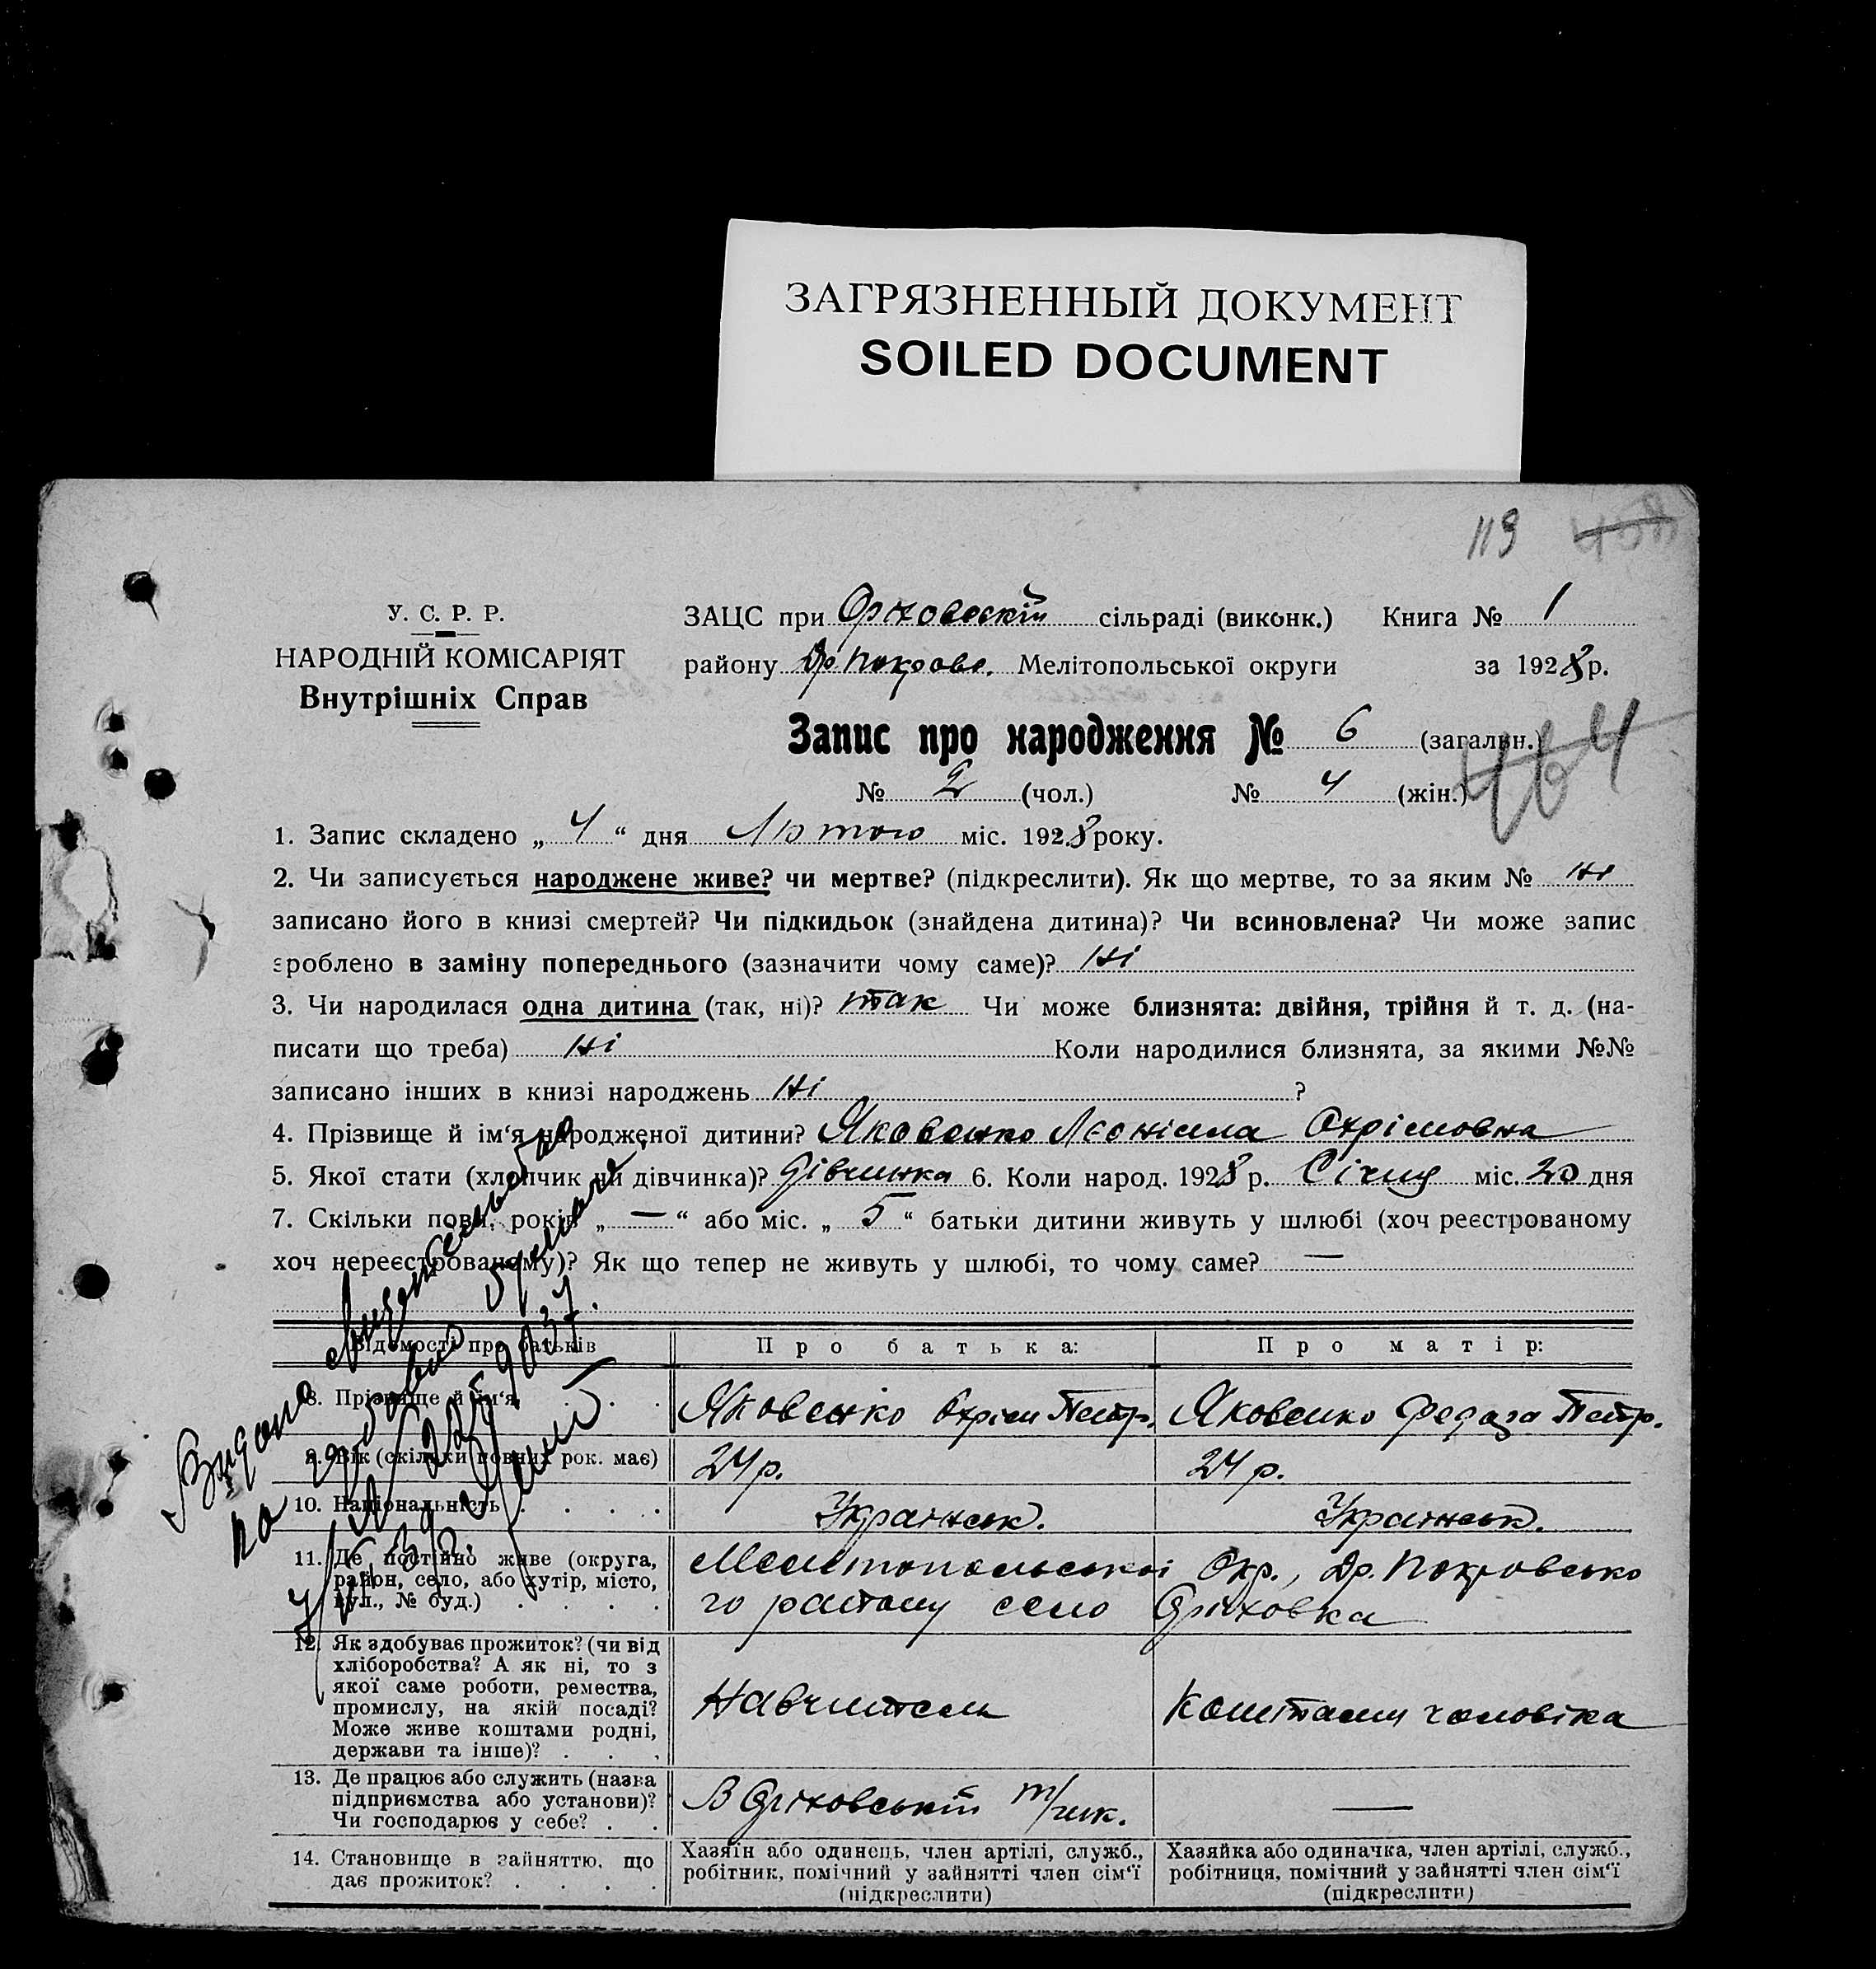 ЗАГРЯЗНЕННЫЙ ДОКУМЕНТ
SOILED DOCUMENT
113
У. С. Р. Р.
НАРОДНІЙ КОМІСАРІЯТ
Внутрішніх Справ
ЗАЦС при Оріховській сільраді (виконк.) Книга № 1
району Др Покровс. Мелітопольської округи за 1928 р.
Запис про народження № 6 (загальн.)
464
№ 2 (чол.) № 4 (жін.)
1. Запис складено „ 4 “ дня Лютого міс. 1928 року.
2. Чи записується народжене живе? чи мертве? (підкреслити). Як що мертве, то за яким № ні
записано його в книзі смертей? Чи підкидьок (знайдена дитина)? Чи всиновлена? Чи може запис
зроблено в заміну попереднього (зазначити чому саме)? Ні
3. Чи народилася одна дитина (так, ні)? так Чи може близнята: двійня, трійня й т. д. (на-
писати що треба) Ні Коли народилися близнята, за якими №№
записано інших в книзі народжень Ні ?
4. Прізвище й ім‘я народженої дитини? Яковенко Леоніла Охрімовна
5. Якої стати (хлопчик чи дівчинка)? Дівчинка 6. Коли народ. 1928 р. Січня міс. 20 дня
7. Скільки повн. років „ — “ або міс. „ 5 “ батьки дитини живуть у шлюбі (хоч реєстрованому
хоч нереєстрованому)? Як що тепер не живуть у шлюбі, то чому саме? —
Видано
на
Відомості про батьків Про батька: Про матір:
8. Прізвище й ім‘я . . . Яковенко Охрім Петр. Яковенко Федора Петр.
9. Вік (скільки повних рок. має) 24 р. 24 р.
10. Національність . . . . Українськ. Українськ.
11. Де постійно живе (округа, район, село, або хутір, місто, вул., № буд.) . . . .
Мелітопольської Окр., Др. Покровсько
го району село Оріховка
12. Як здобуває прожиток? (чи від
хліборобства? А як ні, то з
якої саме роботи, ремества,
промислу, на якій посаді?
Може живе коштами родні,
держави та інше)? . . .
Навчитель Коштами чоловіка
13. Де працює або служить (назва
підприємства або установи)?
Чи господарює у себе? . .
В Оріховській т/чик. —
14. Становище в зайняттю, що
дає прожиток? . . . .
Хазяїн або одинець, член артілі, служб.,
робітник, помічний у зайнятті член сім‘ї
(підкреслити)
Хазяйка або одиначка, член артілі, служб.,
робітниця, помічний у зайнятті член сім‘ї
(підкреслити)